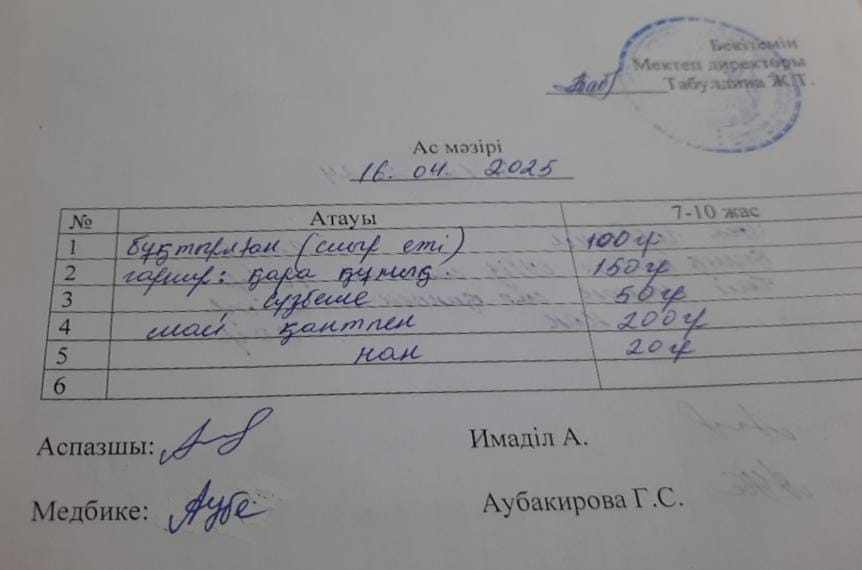 Бекітемін
Мектеп директоры
Табулдина Ж.Т.
Ас мәзірі
16. 04. 2025
№ Атауы 7-10 жас
1 бұқтырлған (сиыр еті) 100гр
2 гарнир: қара құмық 150гр
3 сүзбеше 50гр
4 шай қантпен 200гр
5 нан 20гр
6
Аспазшы: Имаділ А.
Медбике: Аубакирова Г.С.